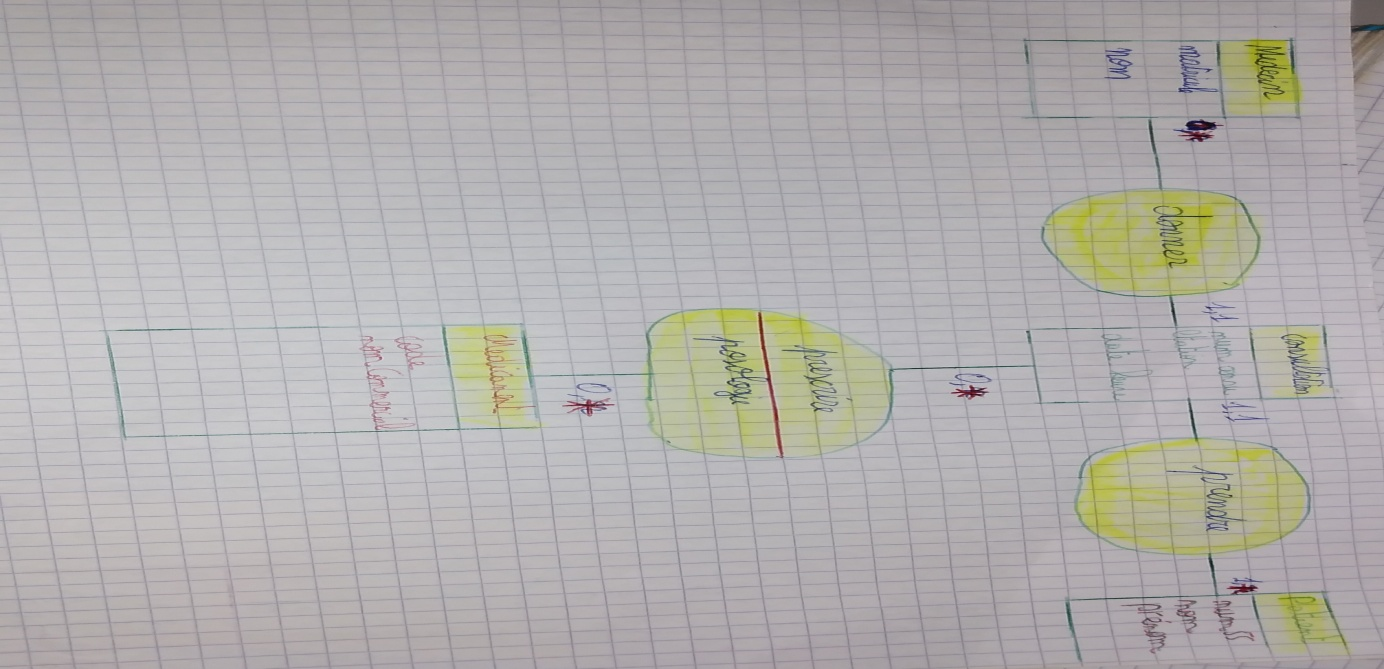 Médecin
matricule
nom
donner
1,1
consultation
1,1
prendre
1,*
Patient
numSS
nom
prénom
0,*
prescrire
posologie
0,*
Médicament
code
nomCommercial